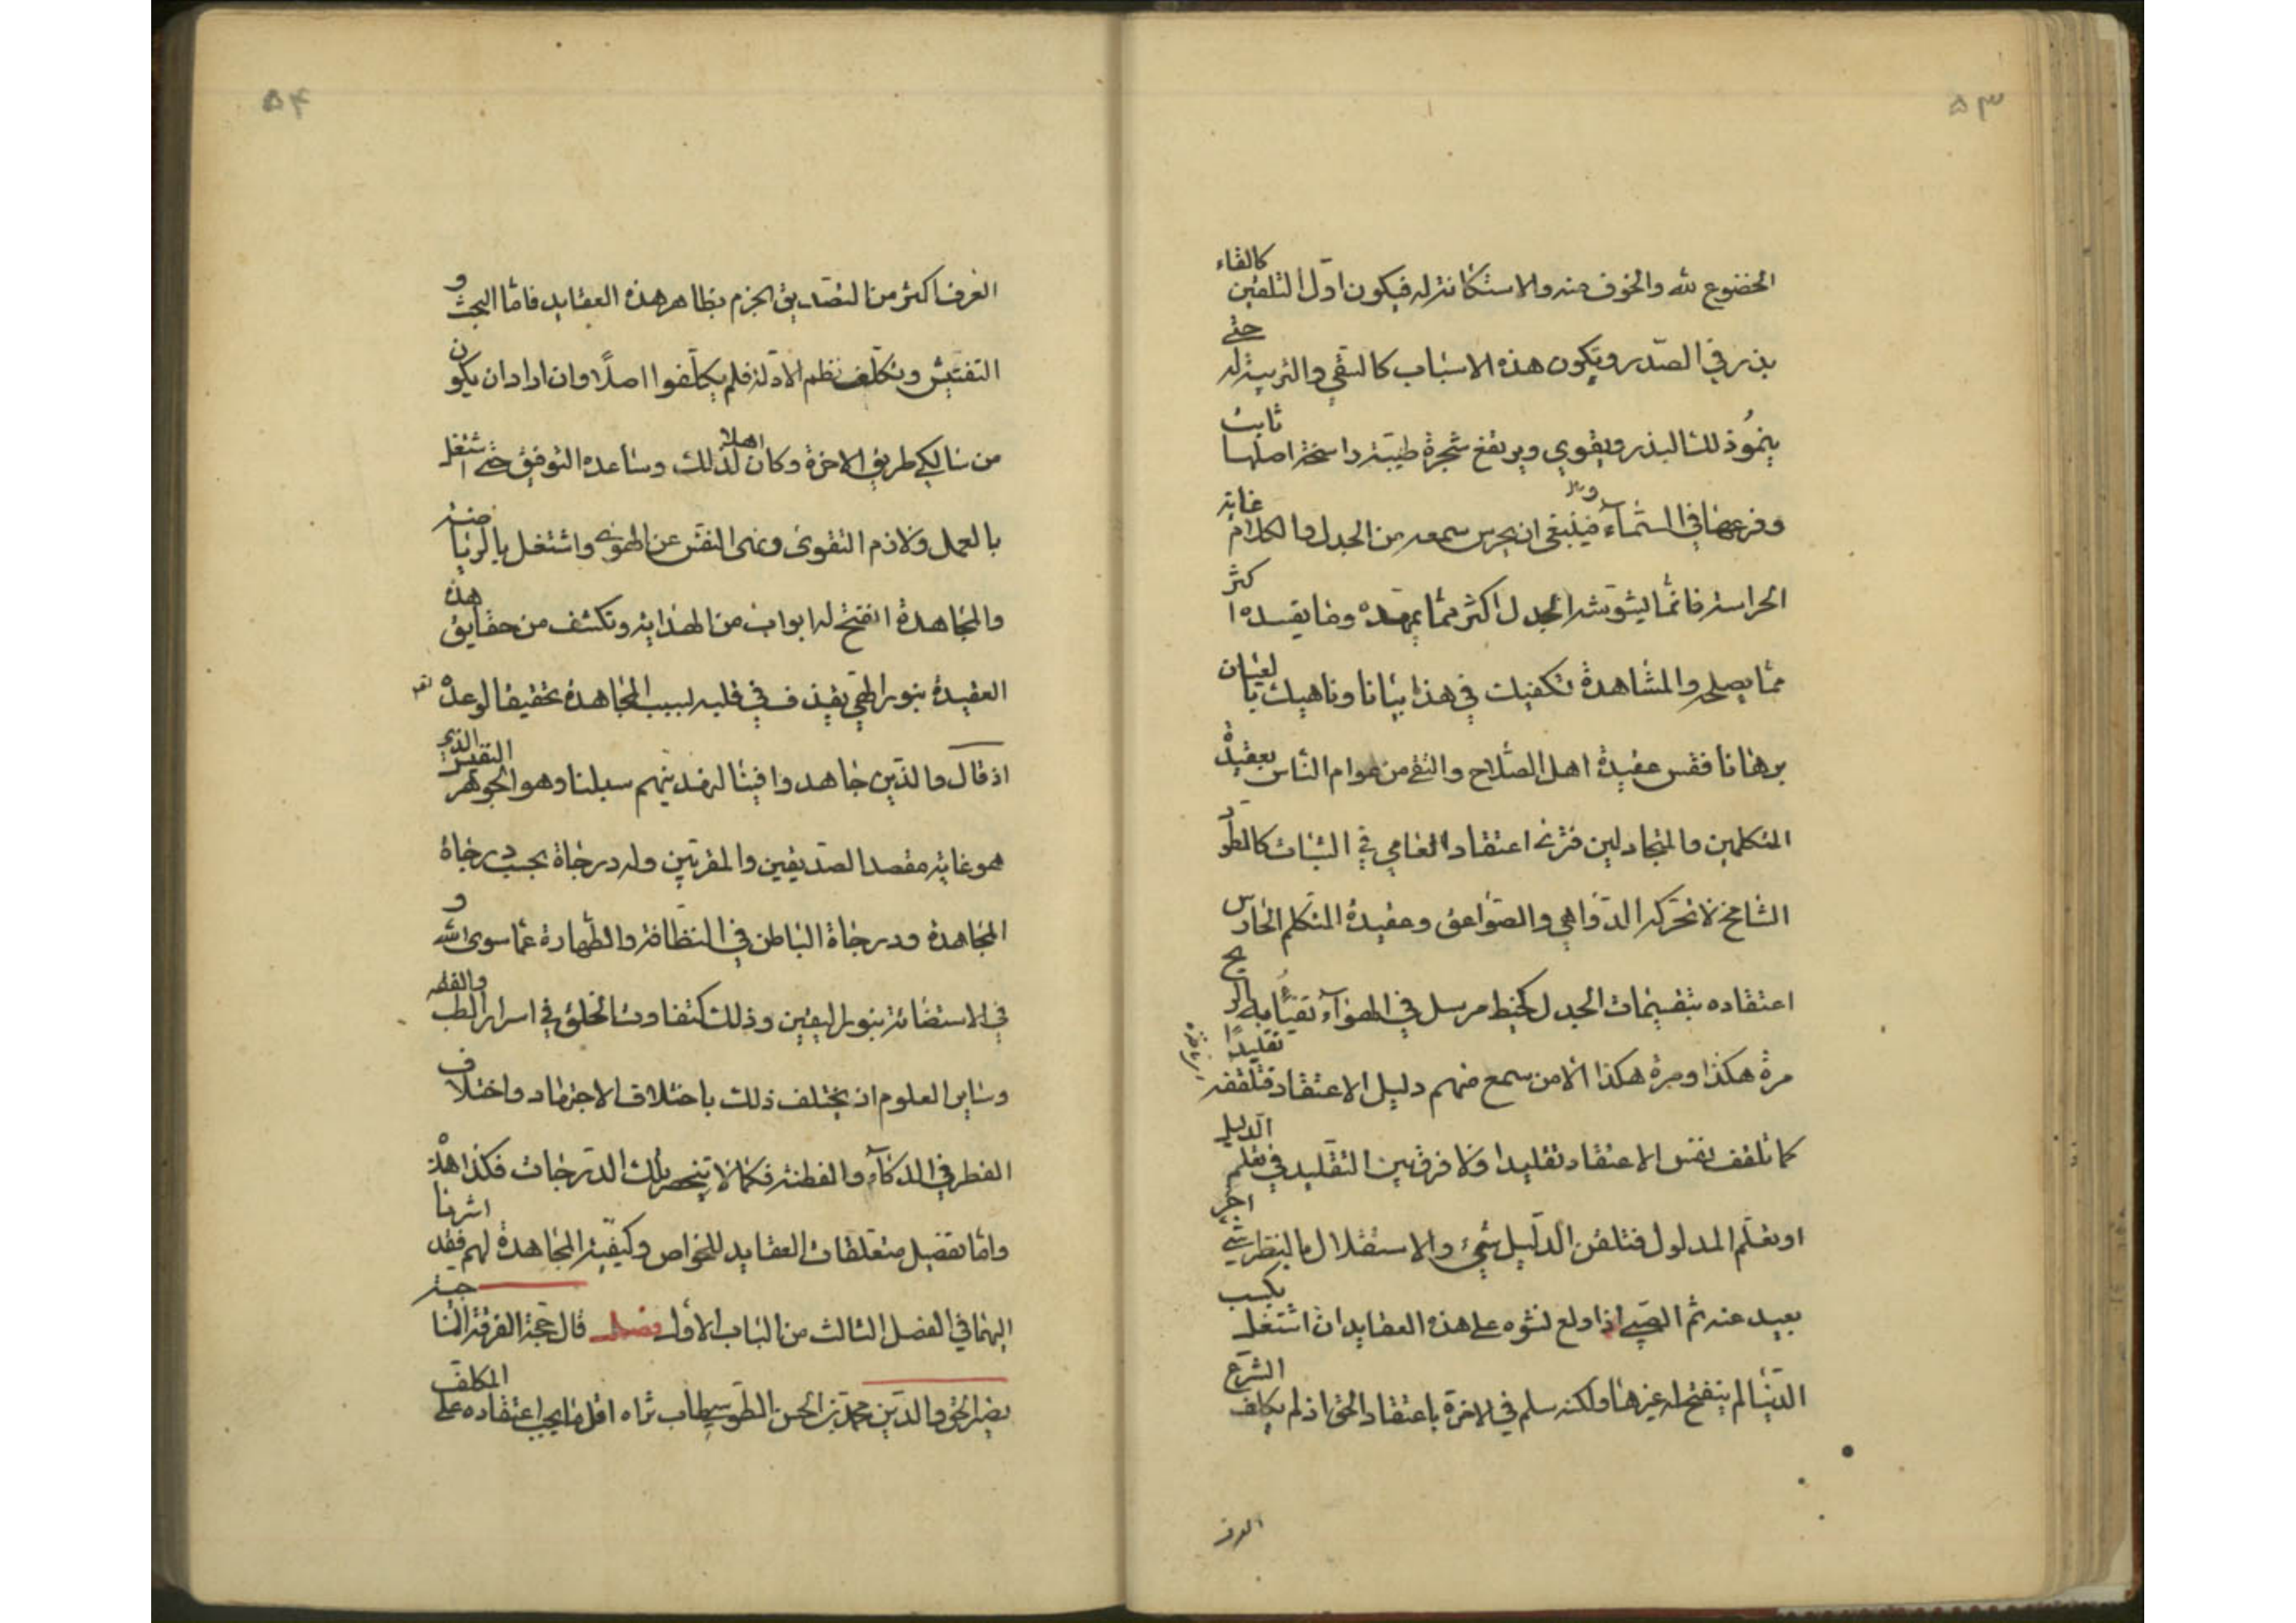 ۵۳
الخضوع لله والخوف منه والاستكانة له فيكون اول التلقين كالقاء
بذر في الصّدر ويكون هذه الاسباب كالسّقي والتربية له حتى
ينمُو ذلك البذر ويقوي ويرتفع شجرة طيّبة راسخة اصلها ثابت
وفرعها في السّمآء وينبغي ان يحرس سمعه من الجدل والكلام غاية
الحراسة فانّما يشوّشه الجدل اكثر ممّا يمهّده وما يفسده اكثر
ممّا يصلحه والمشاهدة تكفيك في هذا بيانا وناهيك بالعيان
برهانا فقس عقيدة اهل الصّلاح والتقى من عوام الناس بعقيدة
المتكلمين والمجادلين فترى اعتقاد العامي في الثبات كالطّود
الشامخ لا تحرّكه الدّواهي والصّواعق وعقيدة المتكلم الحارس
اعتقاده بتقسيمات الجدل كخيط مرسل في الهوآء تفيّأ به الريح
مرة هكذا ومرة هكذا الا من سمع منهم دليل الاعتقاد فتلقفه تقليدًا
كما تلقف نفس الاعتقاد تقليدا ولا فرق بين التقليد في تعلم الدليل
او تعلّم المدلول فتلقن الدّليل شيء والاستقلال بالنظر شيء اخر
بعيد عنه ثم الصّبي اذا وقع نشوه على هذه العقايد ان اشتغل بكسب
الدّنيا لم ينفتح له غيرها ولكنه سلم في الاخرة باعتقاد الحق اذ لم يكلف الشرع
العرف
۵۴
العرف اكثر من التصديق الجزم بظاهر هذه العقايد فامّا البحث و
التفتيش وتكلّف نظم الادلة فلم يكلّفوا اصلًا وان اراد ان يكون
من سالكي طريق الاخرة وكان اهلا لذلك وساعده التوفيق حتى اشتغل
بالعمل ولازم التقوى ونهى النفس عن الهوى واشتغل بالرياضة
والمجاهدة انفتح له ابواب من الهداية وتكشف من حقايق هذه
العقيدة بنور الهي يقذف في قلبه لسبب المجاهدة تحقيقا لوعده
اذ قال والذين جاهدوا فينا لنهدينهم سبلنا وهو الجوهر النفيس الذي
هو غاية مقصد الصّديقين والمقربين وله درجاة بحسب درجاة
المجاهدة ودرجاة الباطن في النظافة والطهارة عما سوى الله و
في الاستضائة بنور اليقين وذلك كتفاوت الخلق في اسرار الطب والفقه
وساير العلوم اذ يختلف ذلك باختلاف الاجتهاد واختلاف
الفطر في الذكآء والفطنة فكما لا ينحصر تلك الدّرجات فكذا هذه
وامّا تفصيل متعلقات العقايد للخواص وكيفيّة المجاهدة لهم فقد اشرنا
اليهما في الفصل الثالث من الباب الاول فصل قال حجّة الفرقة الناجية
نصير الحق والدّين محمّد بن الحسن الطّوسي طاب ثراه اقل ما يجب اعتقاده على المكلف